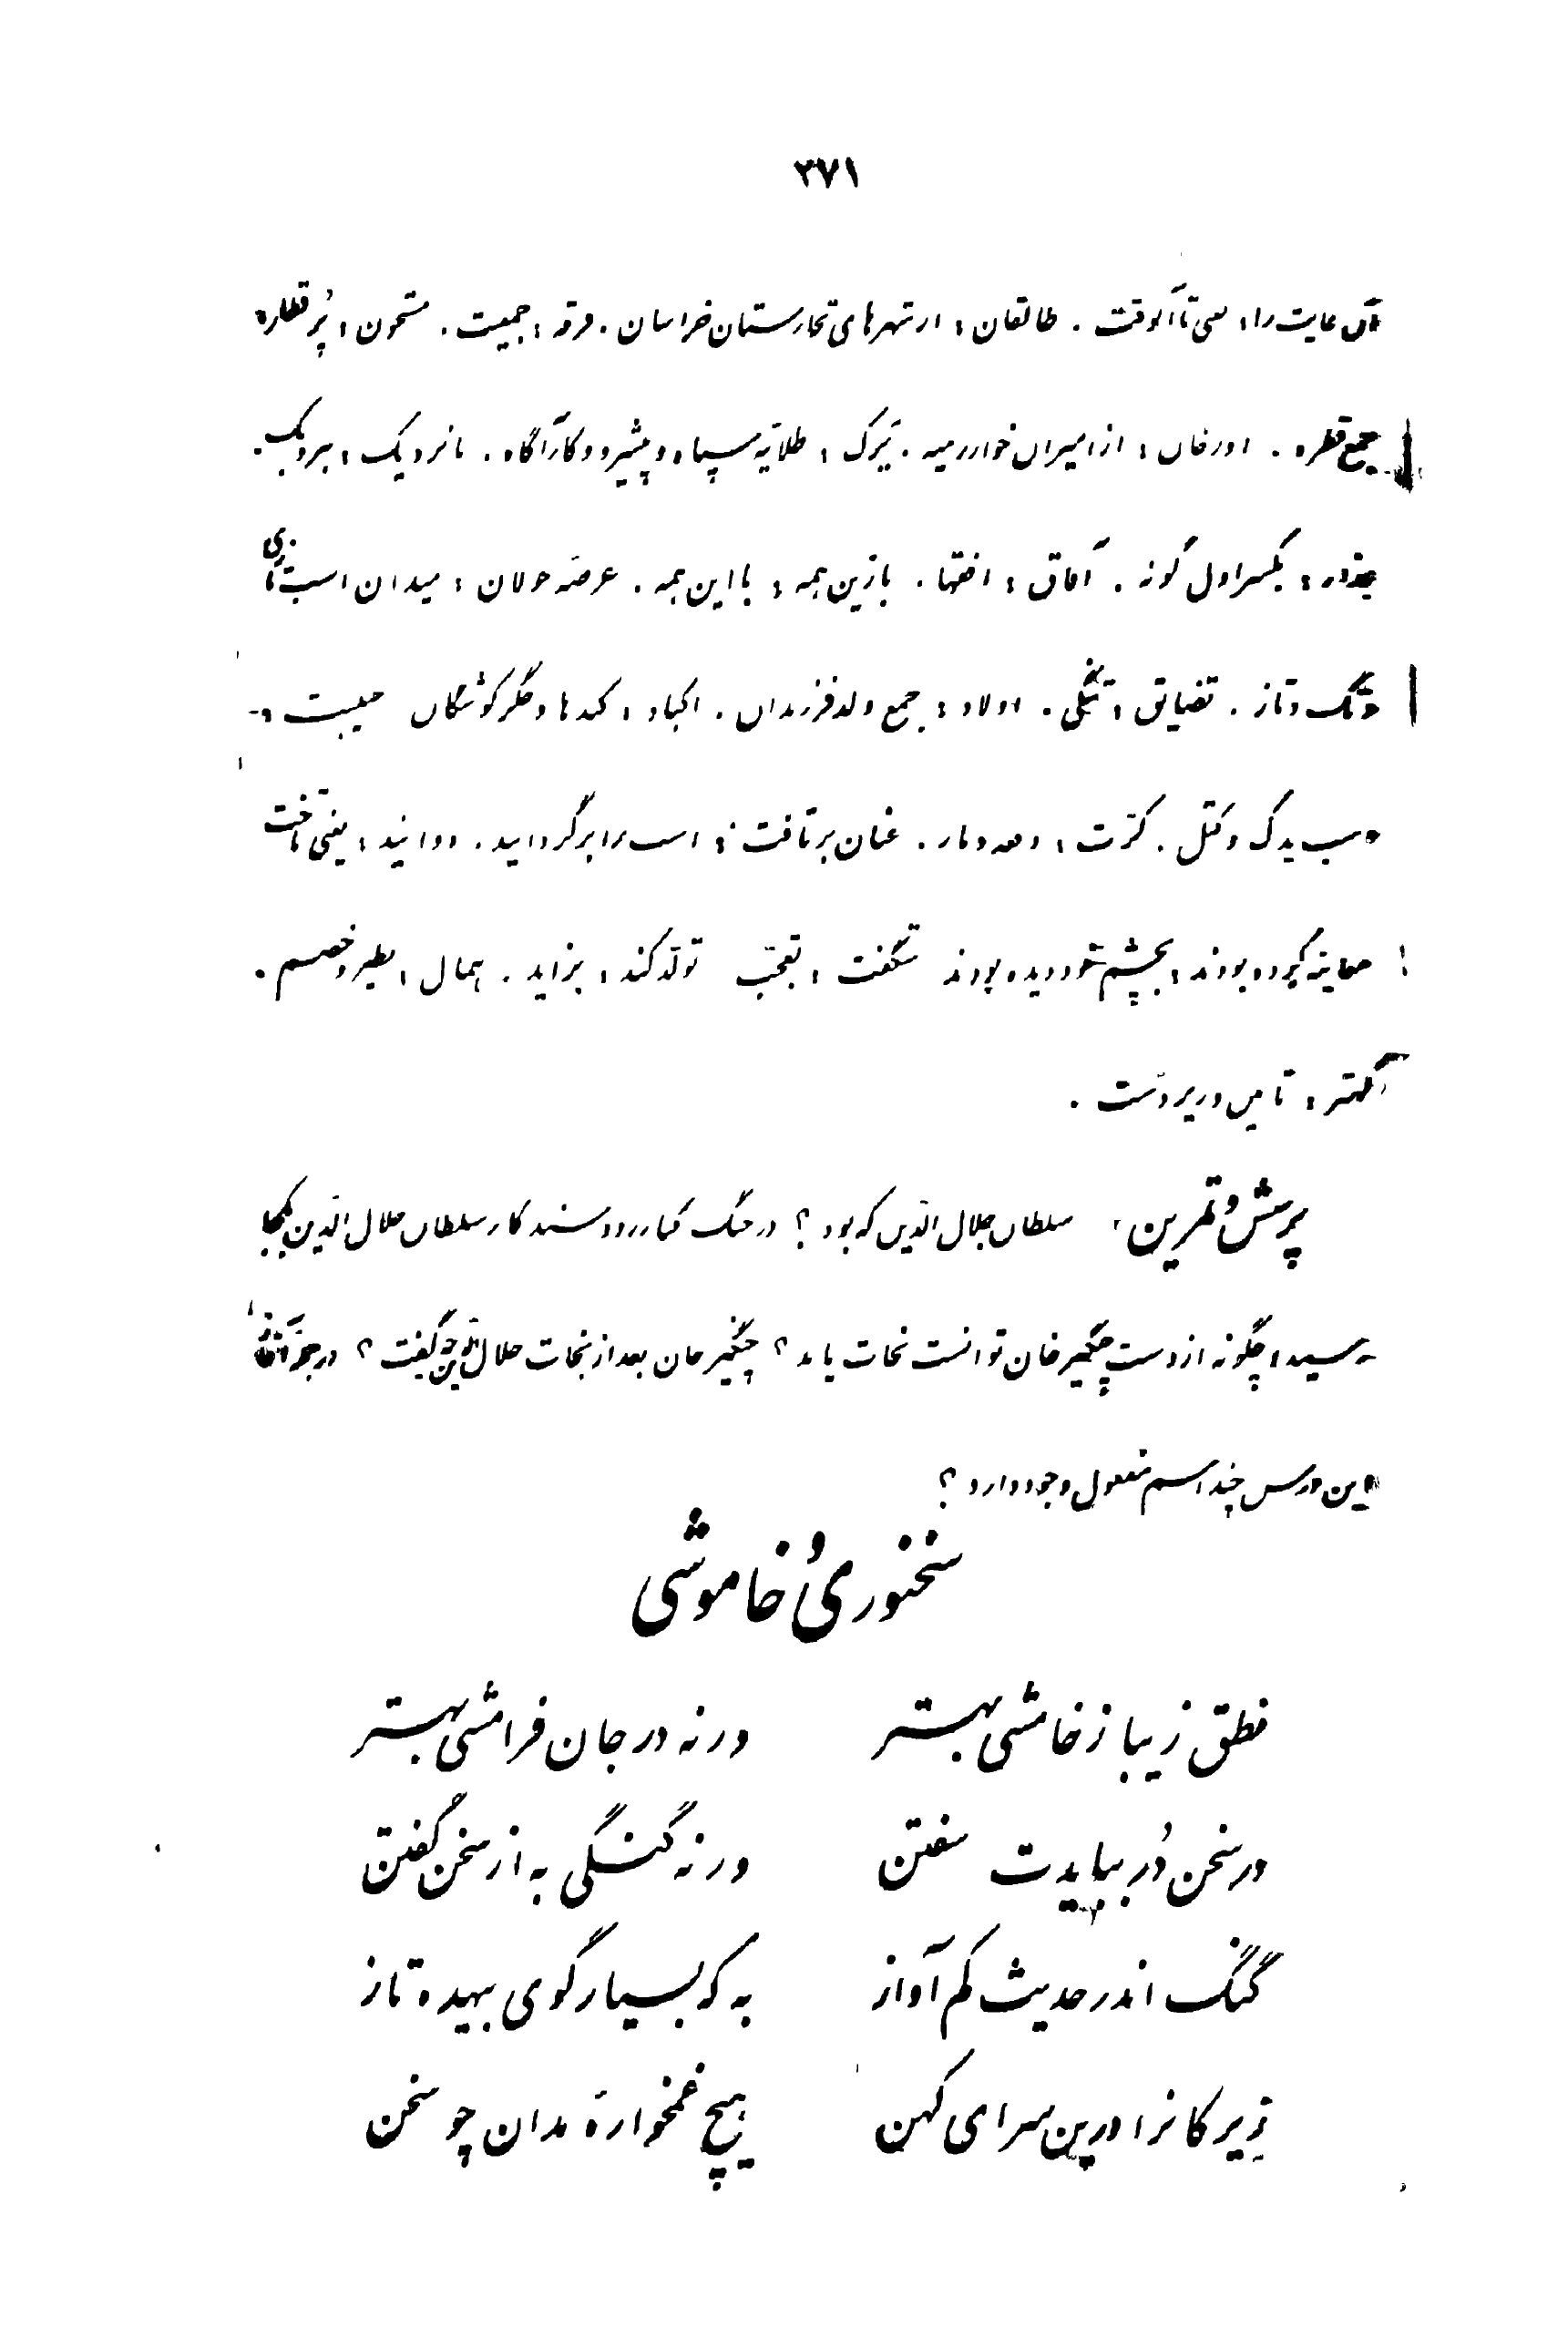 ۳۷۱
آن غایت را، یعنی تا آنوقت . طالقان : از شهرهای تخارستان خراسان . فرقه : جمعیت . مشحون : پُر قطار :
جمع قطره . اورخان : از امیران خوارزمیه . یَزَک : طلایهٔ سپاه و پیشرو و کارآگاه . تا نزدیک :
بکسر اول گونه . آفاق : افقها . بازین همه : با این همه . عرصهٔ جولان : میدان اسب تازی
و تگ و تاز . تضایق : تنگی . اولاد : جمع ولد فرزندان . اکباد : کبدها و جگرگوشگان جنیبت :
اسب یدک و کتل . کَرَّت : دفعه و بار . عنان برتافت : اسب را برگردانید . دوانید : یعنی تاخت
معاینه کرده بودند : بچشم خود دیده بودند شگفت : تعجّب تولّد کند : بزاید . همال : نظیر و خصم .
کهتر : تابین و زیردست .
پرسش و تمرین : سلطان جلال الدّین که بود ؟ در جنگ کنار رود سند کار سلطان جلال الدّین بکجا
رسید ، چگونه از دست چنگیزخان توانست نجات یابد ؟ چنگیزخان بعد از نجات جلال الدّین چه گفت ؟ در
این درس چند اسم مفعول وجود دارد ؟
سخنوری و خاموشی
نطق زیبا ز خامشی بهتر ورنه در جان فرامشی بهتر
در سخن دُر ببایدت سفتن ورنه گنگی به از سخن گفتن
گنگ اندر حدیث کم آواز به که بسیار گوی بیهده تاز
زیرکانرا درین سرای کهن هیچ غمخواره مدان چو سخن